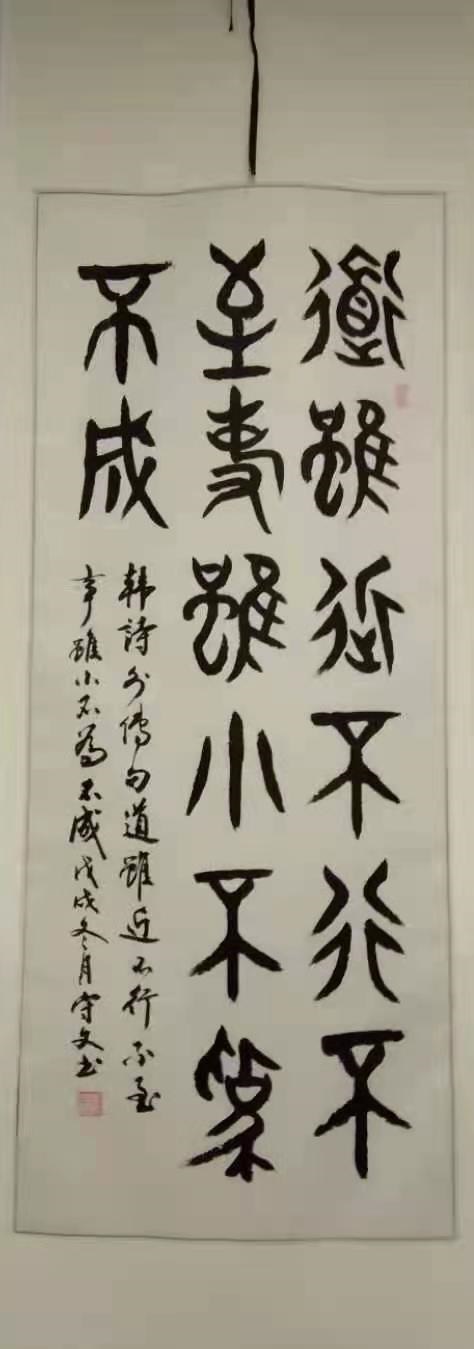 道雖近不行不
至事雖小不為
不成
韩詩外傳句道雖近不行不至
事雖小不為不成戊戌冬月守文书